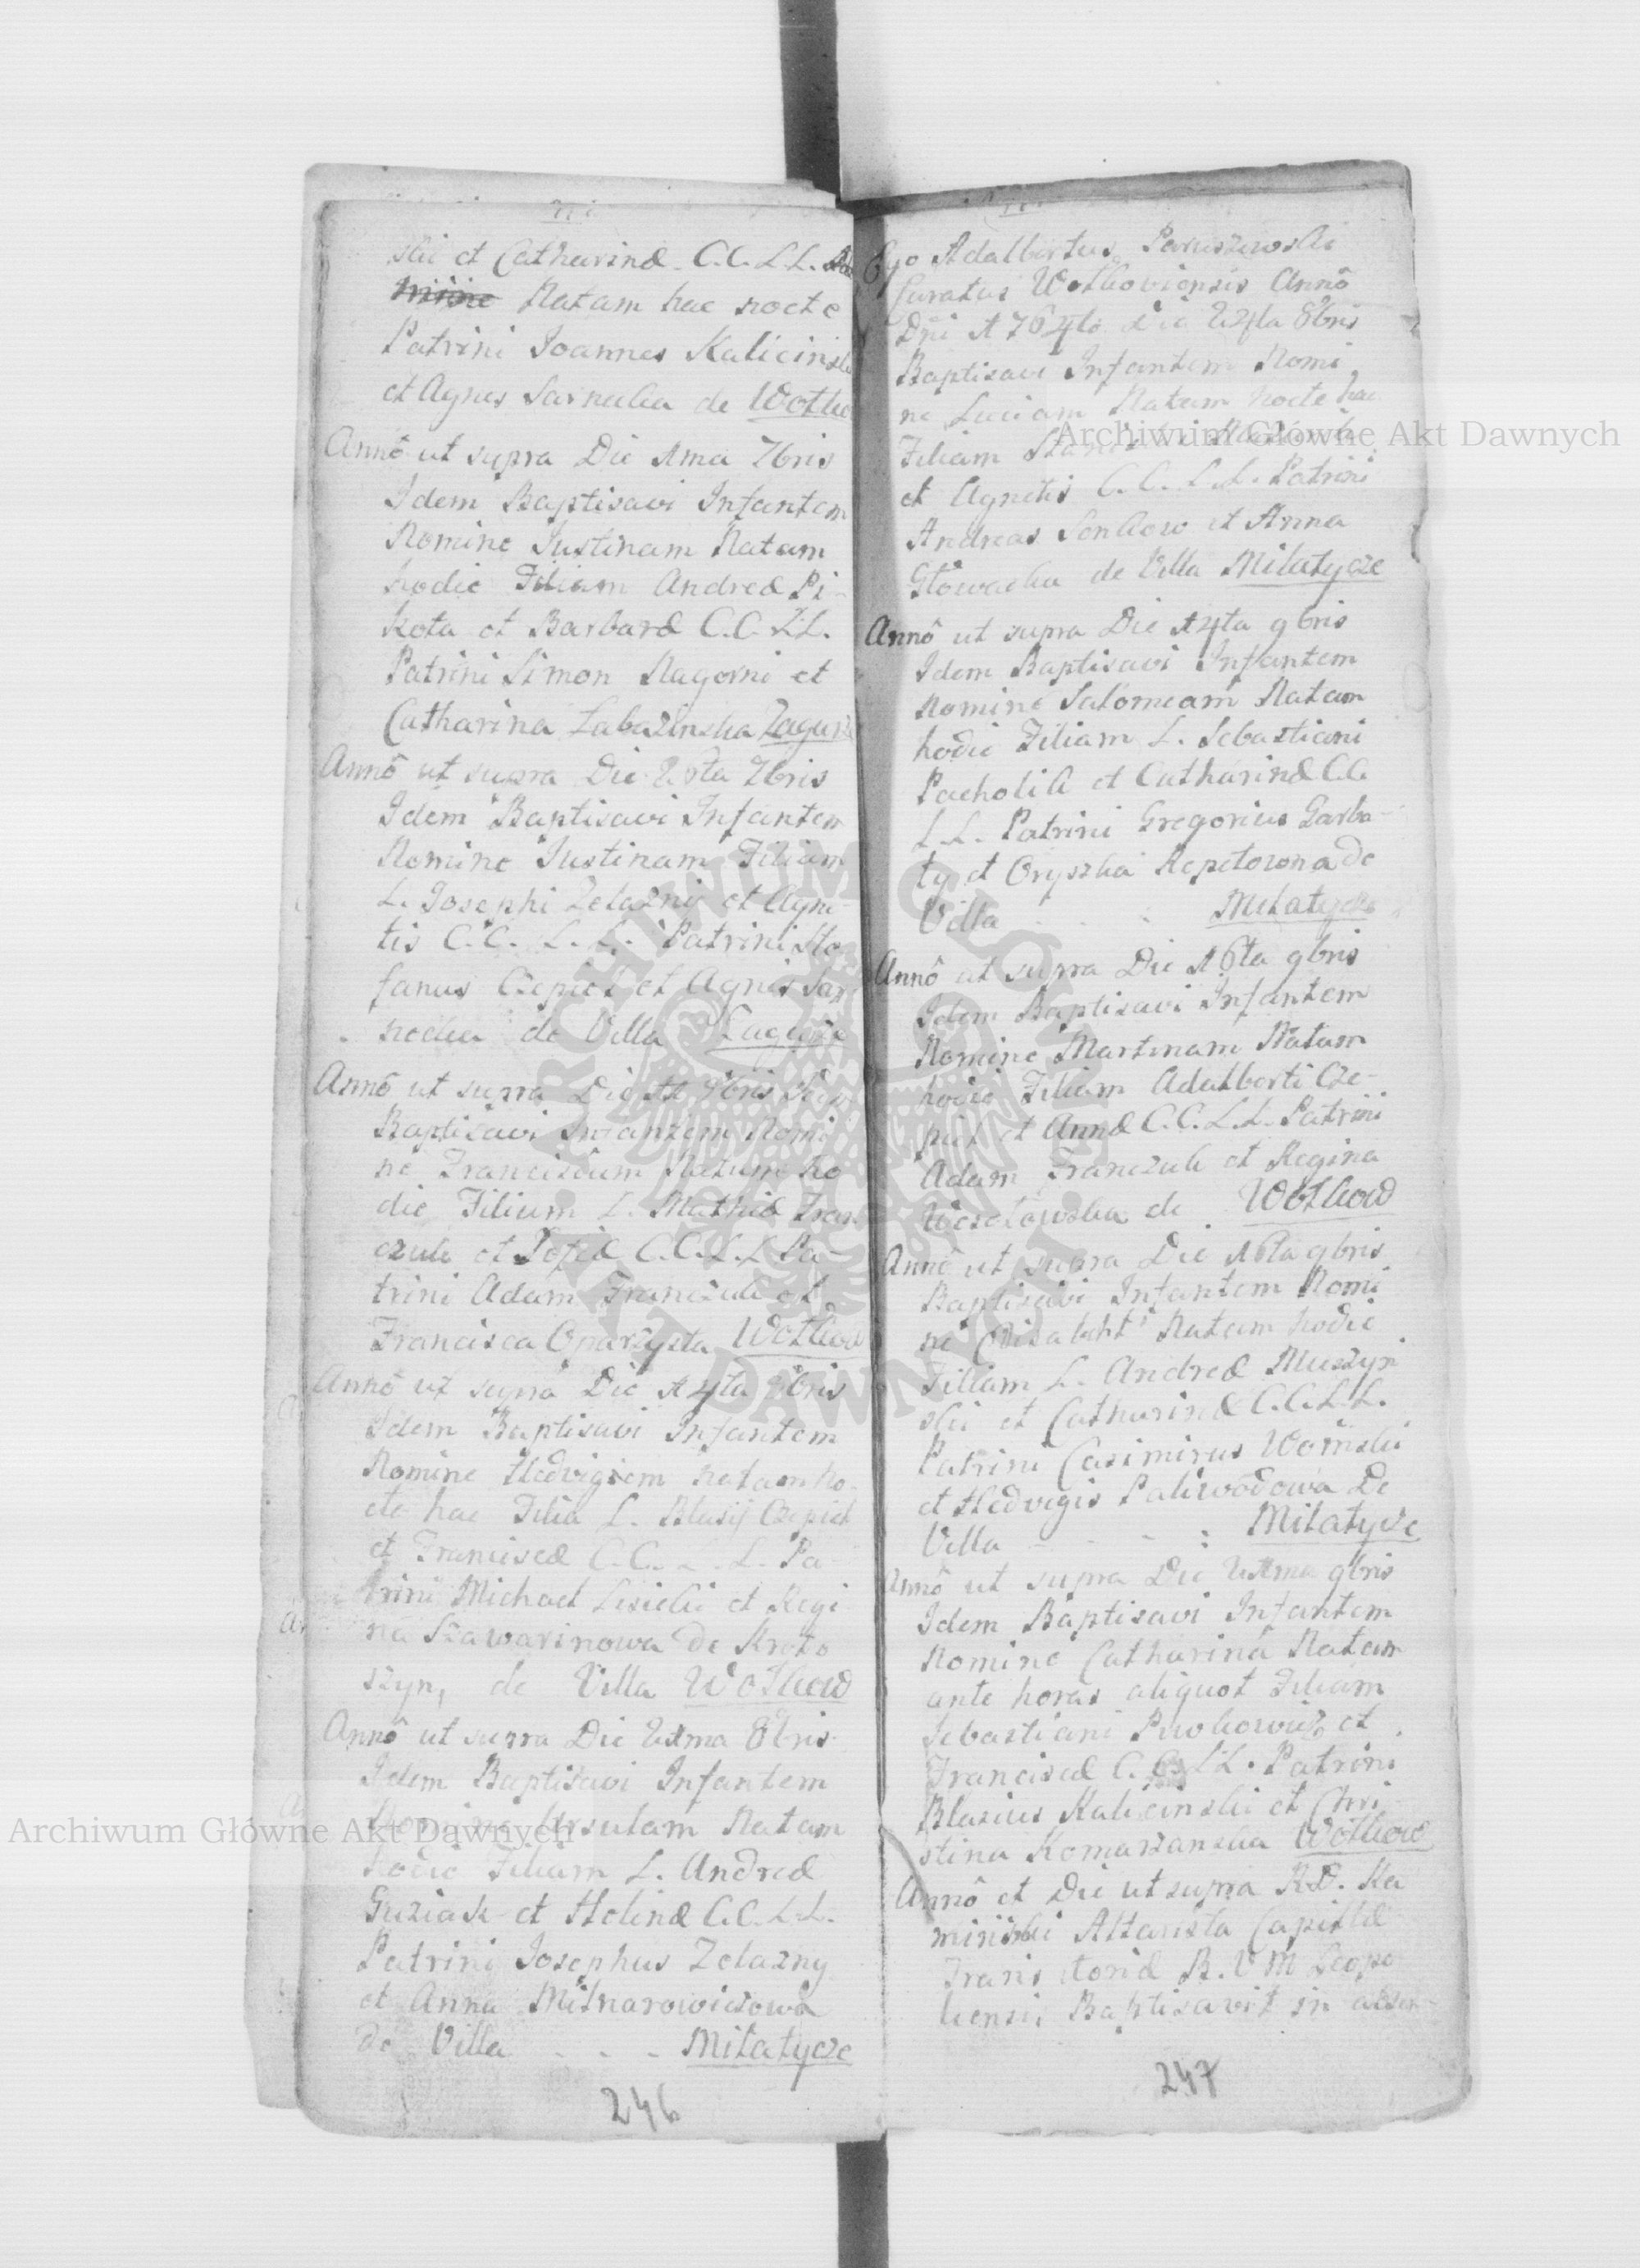 ski et Catharinæ C.C. L.L.
Natam hac nocte
Patrini Joannes Kalicinski
et Agnes Sarnecka de Wołko
Annô ut supra Die 1ma 7bris
Idem Baptisavi Infantem
Nomine Justinam Natam
hodie Filiam Andreæ Pi-
kota et Barbaræ C.C. L.L.
Patrini Simon Nagorni et
Catharina Labazinska Zagurz
Annô ut supra Die 7bris
Idem Baptisavi Infantem
Nomine Justinam Filiam
L. Josephi Zelazny et Agne-
tis C.C. L.L. Patrini Ste
fanus Czepiel et Agnes Sar
necka de Villa
Annô ut supra Die Idem
Baptisavi Infantem Nomi
ne Franciscum Natum ho
die Filium L. Mathiæ Fran
czuk et Zofiæ C.C. L.L. Pa-
trini Adam Franczuk et
Francisca Oparzysta Wołkow
Annô ut supra Die 14ta
Idem Baptisavi Infantem
Nomine Hedvigiem natam no-
cte hac Filia L. Blasij Czepiel
et Franciscæ C.C. L.L. Pa-
trini Michael Lisicki et Regi
na Szawarinowa de Kroto
szyn, de Villa Wołkow
Annô ut supra Die 21ma 8bris
Idem Baptisavi Infantem
Nomine Ursulam Natam
hodie Filiam L. Andreæ
Guziak et Helenæ C.C. L.L.
Patrini Josephus Zelazny
et Anna Miłnarowiczowa
de Villa - - - Miłatycze
246
Ego Adalbertus Paruszewski
Curatus Wołkoviensis Annô
Dñi 1764to Die 24ta 8bris
Baptisavi Infantem Nomi
ne Luciam Natam nocte hac
Filiam
et Agnetis C.C. L.L. Patrini
Andreas Senkow et Anna
Głowacka de Villa Miłatycze
Annô ut supra Die 14ta 9bris
Idem Baptisavi Infantem
Nomine Salomeam Natam
hodie Filiam L. Sebastiani
Pacholik et Catharinæ C.C.
L.L. Patrini Gregorius Garba-
ty et Oryszka Repetowna de
Villa - - Miłatycze
Annô ut supra Die 16ta 9bris
Idem Baptisavi Infantem
Nomine Martinam Natam
hodie Filiam Adalberti Cze-
piel et Annæ C.C. L.L. Patrini
Adam Franczuk et Regina
Wesołowska de Wołkow
Annô ut supra Die 16ta 9bris
Baptisavi Infantem Nomi
ne Elisabeht Natam hodie
Filiam L. Andreæ Muszyn
ski et Catharinæ C.C. L.L.
Patrini Casimirus Woinski
et Hedvigis Paliwodowa De
Villa - - - : Miłatycze
Annô ut supra Die 21ma 9bris
Idem Baptisavi Infantem
Nomine Catharina Natam
ante horas aliquot Filiam
Sebastiani et
Franciscæ C.C. L.L. Patrini
Blasius Kalicinski et Chri
stina Komarzanska Wołkow
Annô et Die ut supra R.D. Ka
minski Altarista Capellæ
B.V.M Leopo
liensis Baptisavit in absen
247
Archiwum Główne Akt Dawnych
Archiwum Główne Akt Dawnych
ARCHIWUM GŁÓWNE AKT DAWNYCH